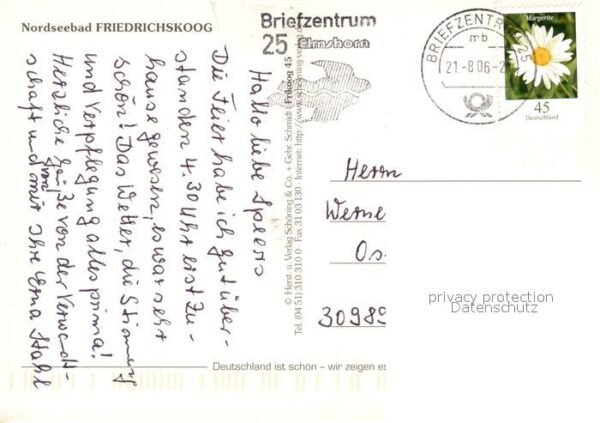 Nordseebad FRIEDRICHSKOOG
Hallo liebe Speers
Die Feier habe ich gut über-
standen 4.30 Uhr erst zu-
hause gewesen, es war sehr
schön! Das Wetter, die Stimmung
und Verpflegung alles prima!
Herzliche Grüße von der Verwandt-
schaft und von mir Ihre Erna Stahl
© Herst. u. Verlag Schöning & Co. + Gebr. Schmidt · Frikoog 45
Tel. (04 51) 310 310 0 · Fax 31 03 130 · Internet: http://www.schoening-verlag.de
Briefzentrum
25 Elmshorn
BRIEFZENTRUM 25
mb
21.-8.06-2
Margerite
45
Deutschland
Herrn
Werne
Os
30989
privacy protection
Datenschutz
Deutschland ist schön – wir zeigen es